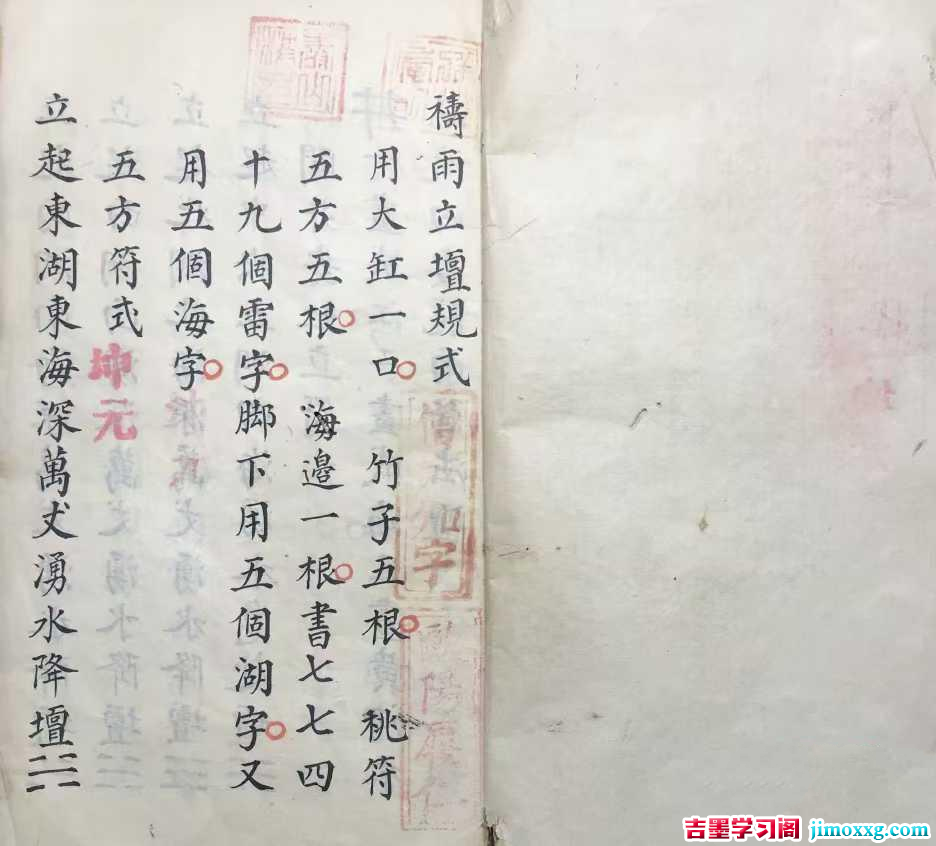 禱雨立壇規式
用大缸一口。竹子五根。桃符
五方五根。海邉一根。書七七四
十九個雷字。脚下用五個湖字。又
用五個海字。
五方符式
坤元
立起東湖東海深萬丈湧水降壇二二二
吉墨学习阁 jimoxxg.com